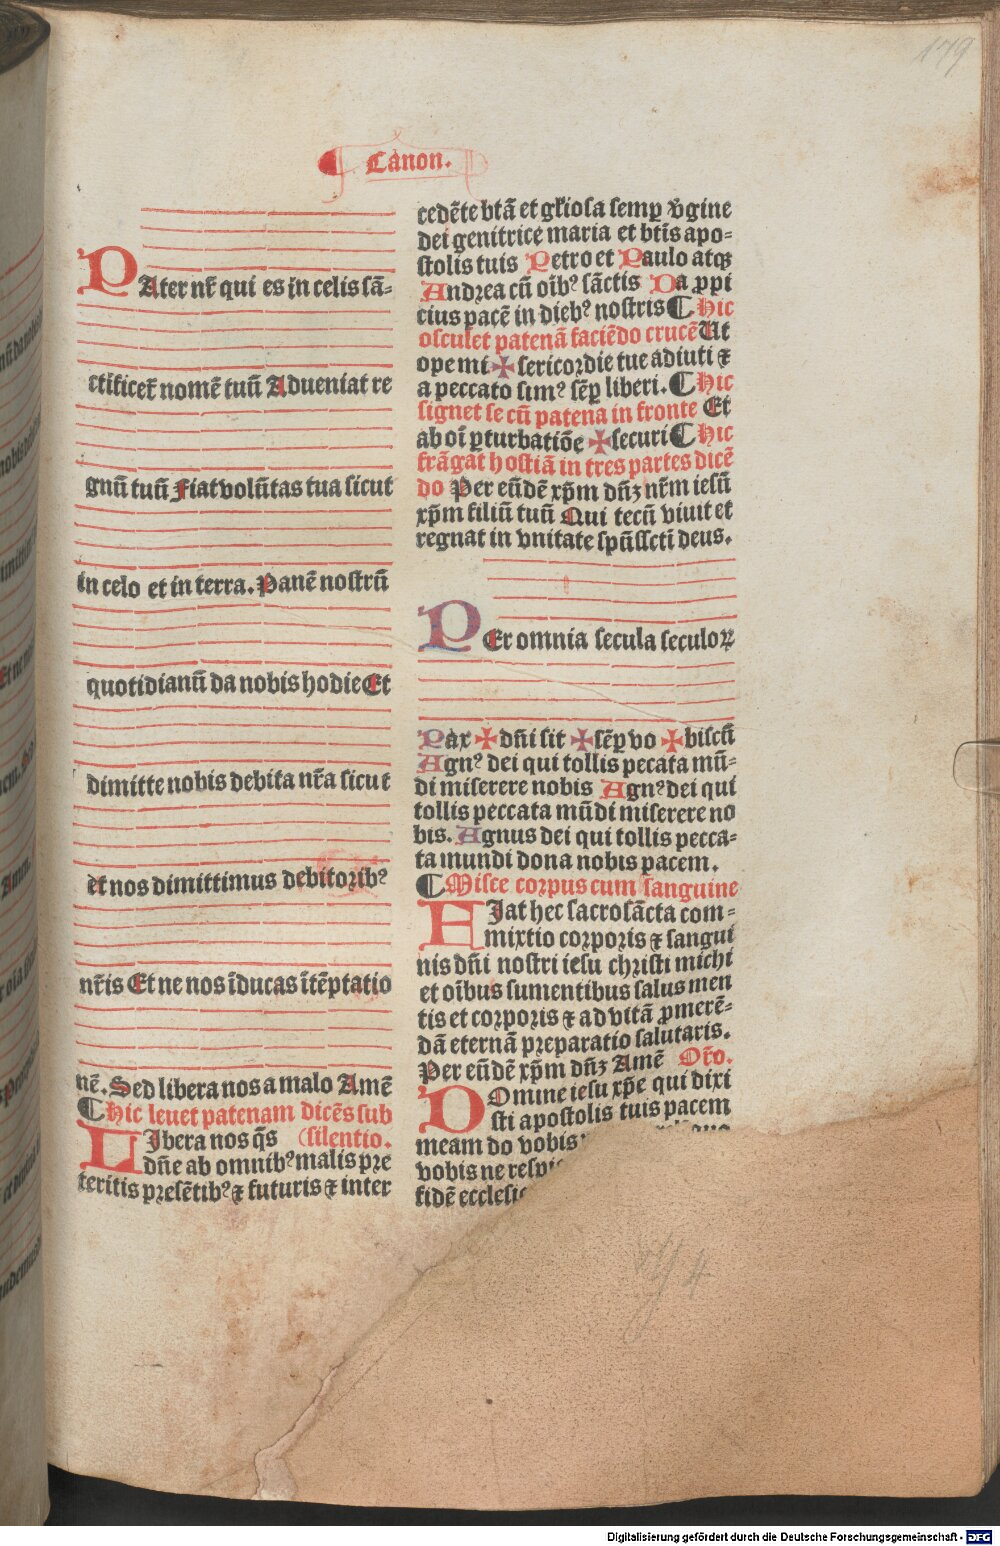 179
Canon.
PAter nr̄ qui es in celis sā-
ctificet̄ nomē tuū Adueniat re
gnū tuū Fiat volūtas tua sicut
in celo et in terra. Panē nostrū
quotidianū da nobis hodie Et
dimitte nobis debita nr̄a sicut
et nos dimittimus debitorib⁹
nr̄is Et ne nos īducas ītēptatio
nē. Sed libera nos a malo Amē
¶ Hic leuet patenam dicēs sub
LIbera nos q̄s (silentio.
dn̄e ab omnib⁹ malis pre
teritis presētib⁹ ⁊ futuris ⁊ inter
cedēte btā et gl̄iosa semꝑ v̄gine
dei genitrice maria et btīs apo-
stolis tuis Petro et Paulo atqꝫ
Andrea cū oīb⁹ sāctis Da ꝓpi
cius pacē in dieb⁹ nostris ¶ Hic
osculet patenā faciēdo crucē Ut
ope mi ✠ sericordie tue adiuti ⁊
a peccato sim⁹ sēꝑ liberi. ¶ Hic
signet se cū patena in fronte Et
ab oī ꝑturbatiōe ✠ securi ¶ Hic
frāgat hostiā in tres partes dicē
do Per eūdē xp̄m dn̄ꝫ nr̄m iesū
xp̄m filiū tuū Qui tecū viuit et
regnat in vnitate spūssctī deus.
PEr omnia secula seculoꝝ
Pax ✠ dn̄i sit ✠ sēꝑ vo ✠ biscū
Agn⁹ dei qui tollis pecata mū-
di miserere nobis Agn⁹ dei qui
tollis peccata mūdi miserere no
bis. Agnus dei qui tollis pecca-
ta mundi dona nobis pacem.
¶ Misce corpus cum sanguine
FIat hec sacrosācta com-
mixtio corporis ⁊ sangui
nis dn̄i nostri iesu christi michi
et oībus sumentibus salus men
tis et corporis ⁊ ad vitā ꝓmerē-
dā eternā preparatio salutaris.
Per eūdē xp̄m dn̄ꝫ Amē Or̄o.
DOmine iesu xp̄e qui dixi
sti apostolis tuis pacem
meam do vobis
vobis ne respi
fidē ecclesi
Digitalisierung gefördert durch die Deutsche Forschungsgemeinschaft - DFG